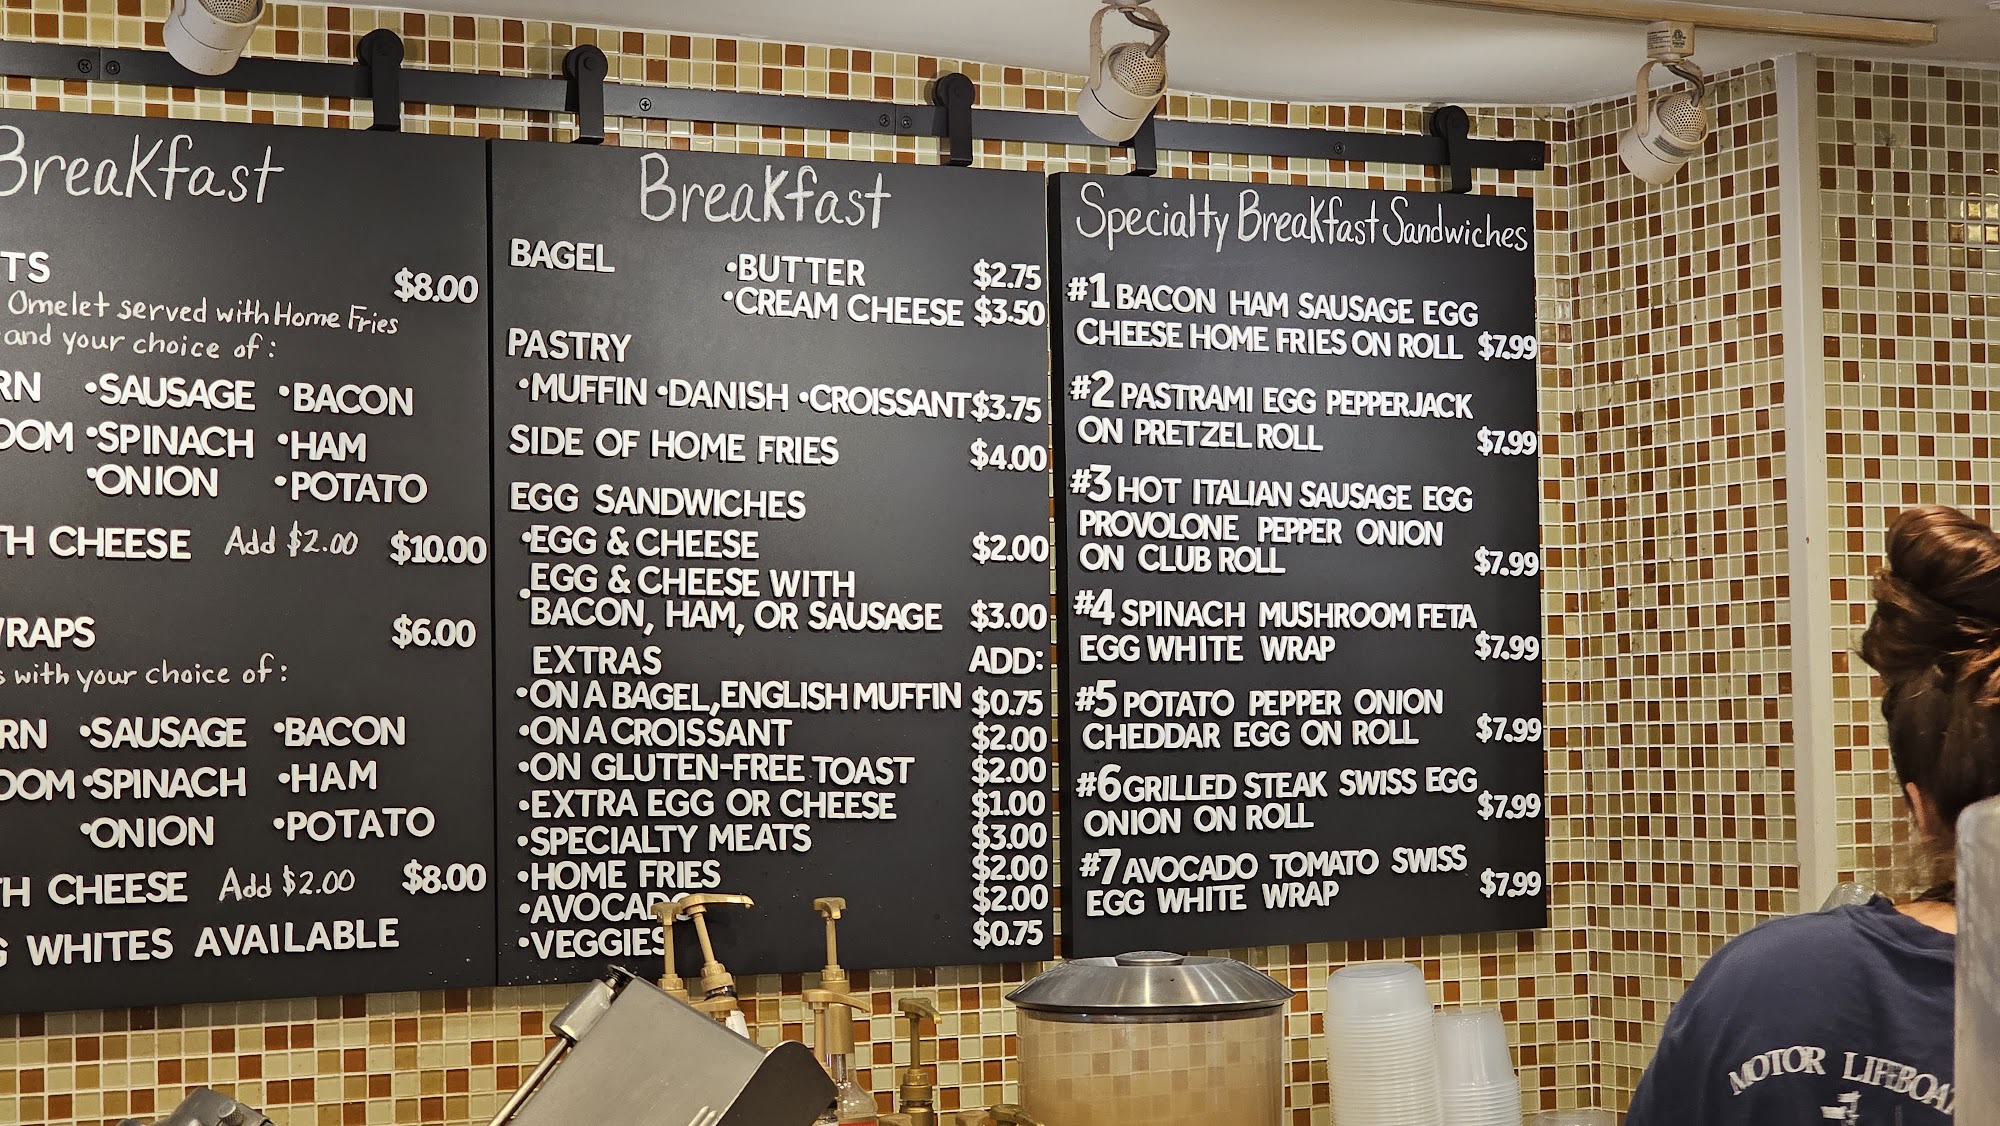 Breakfast
TS $8.00
Omelet served with Home Fries
and your choice of:
RN •SAUSAGE •BACON
OOM •SPINACH •HAM
•ONION •POTATO
TH CHEESE Add $2.00 $10.00
WRAPS $6.00
s with your choice of:
RN •SAUSAGE •BACON
OOM •SPINACH •HAM
•ONION •POTATO
TH CHEESE Add $2.00 $8.00
G WHITES AVAILABLE
Breakfast
BAGEL •BUTTER $2.75
•CREAM CHEESE $3.50
PASTRY
•MUFFIN •DANISH •CROISSANT $3.75
SIDE OF HOME FRIES $4.00
EGG SANDWICHES
•EGG & CHEESE $2.00
•EGG & CHEESE WITH
BACON, HAM, OR SAUSAGE $3.00
EXTRAS ADD:
•ON A BAGEL, ENGLISH MUFFIN $0.75
•ON A CROISSANT $2.00
•ON GLUTEN-FREE TOAST $2.00
•EXTRA EGG OR CHEESE $1.00
•SPECIALTY MEATS $3.00
•HOME FRIES $2.00
•AVOCADO $2.00
•VEGGIES $0.75
Specialty Breakfast Sandwiches
#1 BACON HAM SAUSAGE EGG
CHEESE HOME FRIES ON ROLL $7.99
#2 PASTRAMI EGG PEPPERJACK
ON PRETZEL ROLL $7.99
#3 HOT ITALIAN SAUSAGE EGG
PROVOLONE PEPPER ONION
ON CLUB ROLL $7.99
#4 SPINACH MUSHROOM FETA
EGG WHITE WRAP $7.99
#5 POTATO PEPPER ONION
CHEDDAR EGG ON ROLL $7.99
#6 GRILLED STEAK SWISS EGG
ONION ON ROLL $7.99
#7 AVOCADO TOMATO SWISS
EGG WHITE WRAP $7.99
MOTOR LIFEBOA